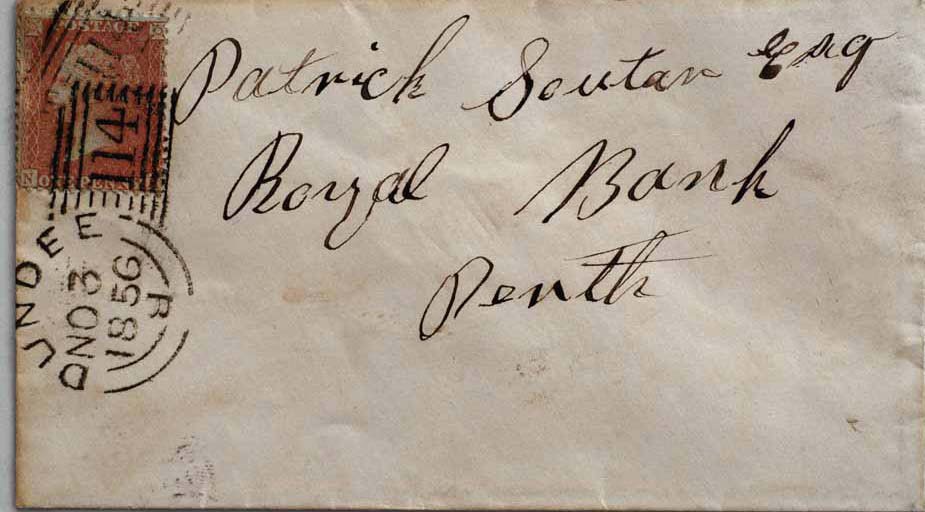 POSTAGE
114
Patrick Soutar Esq
Royal Bank
Perth
DUNDEE
NO 3
1856
R